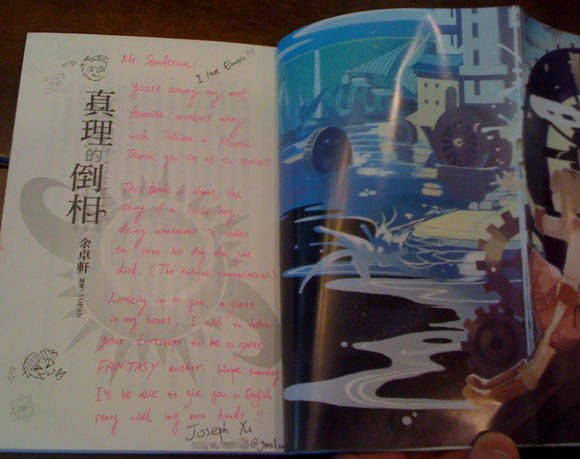 真理的倒相
余卓軒
VOFAN
Mr. Sanderson:
I love Elantris!!!
You're among my most
favorite authors along
with Tolkien & Martin
Thank you for all the stories!!
This book is about the
story of a little boy
doing whatever it takes
to save his dog who just
died. (The Prologue summarizes all)
Looking up to you, a giant
in my heart. I wish to follow
your footsteps to be a great
FANTASY author. Hope someday
I'll be able to give you an English
copy with my own hands!!
Joseph Yu
@gmail.com